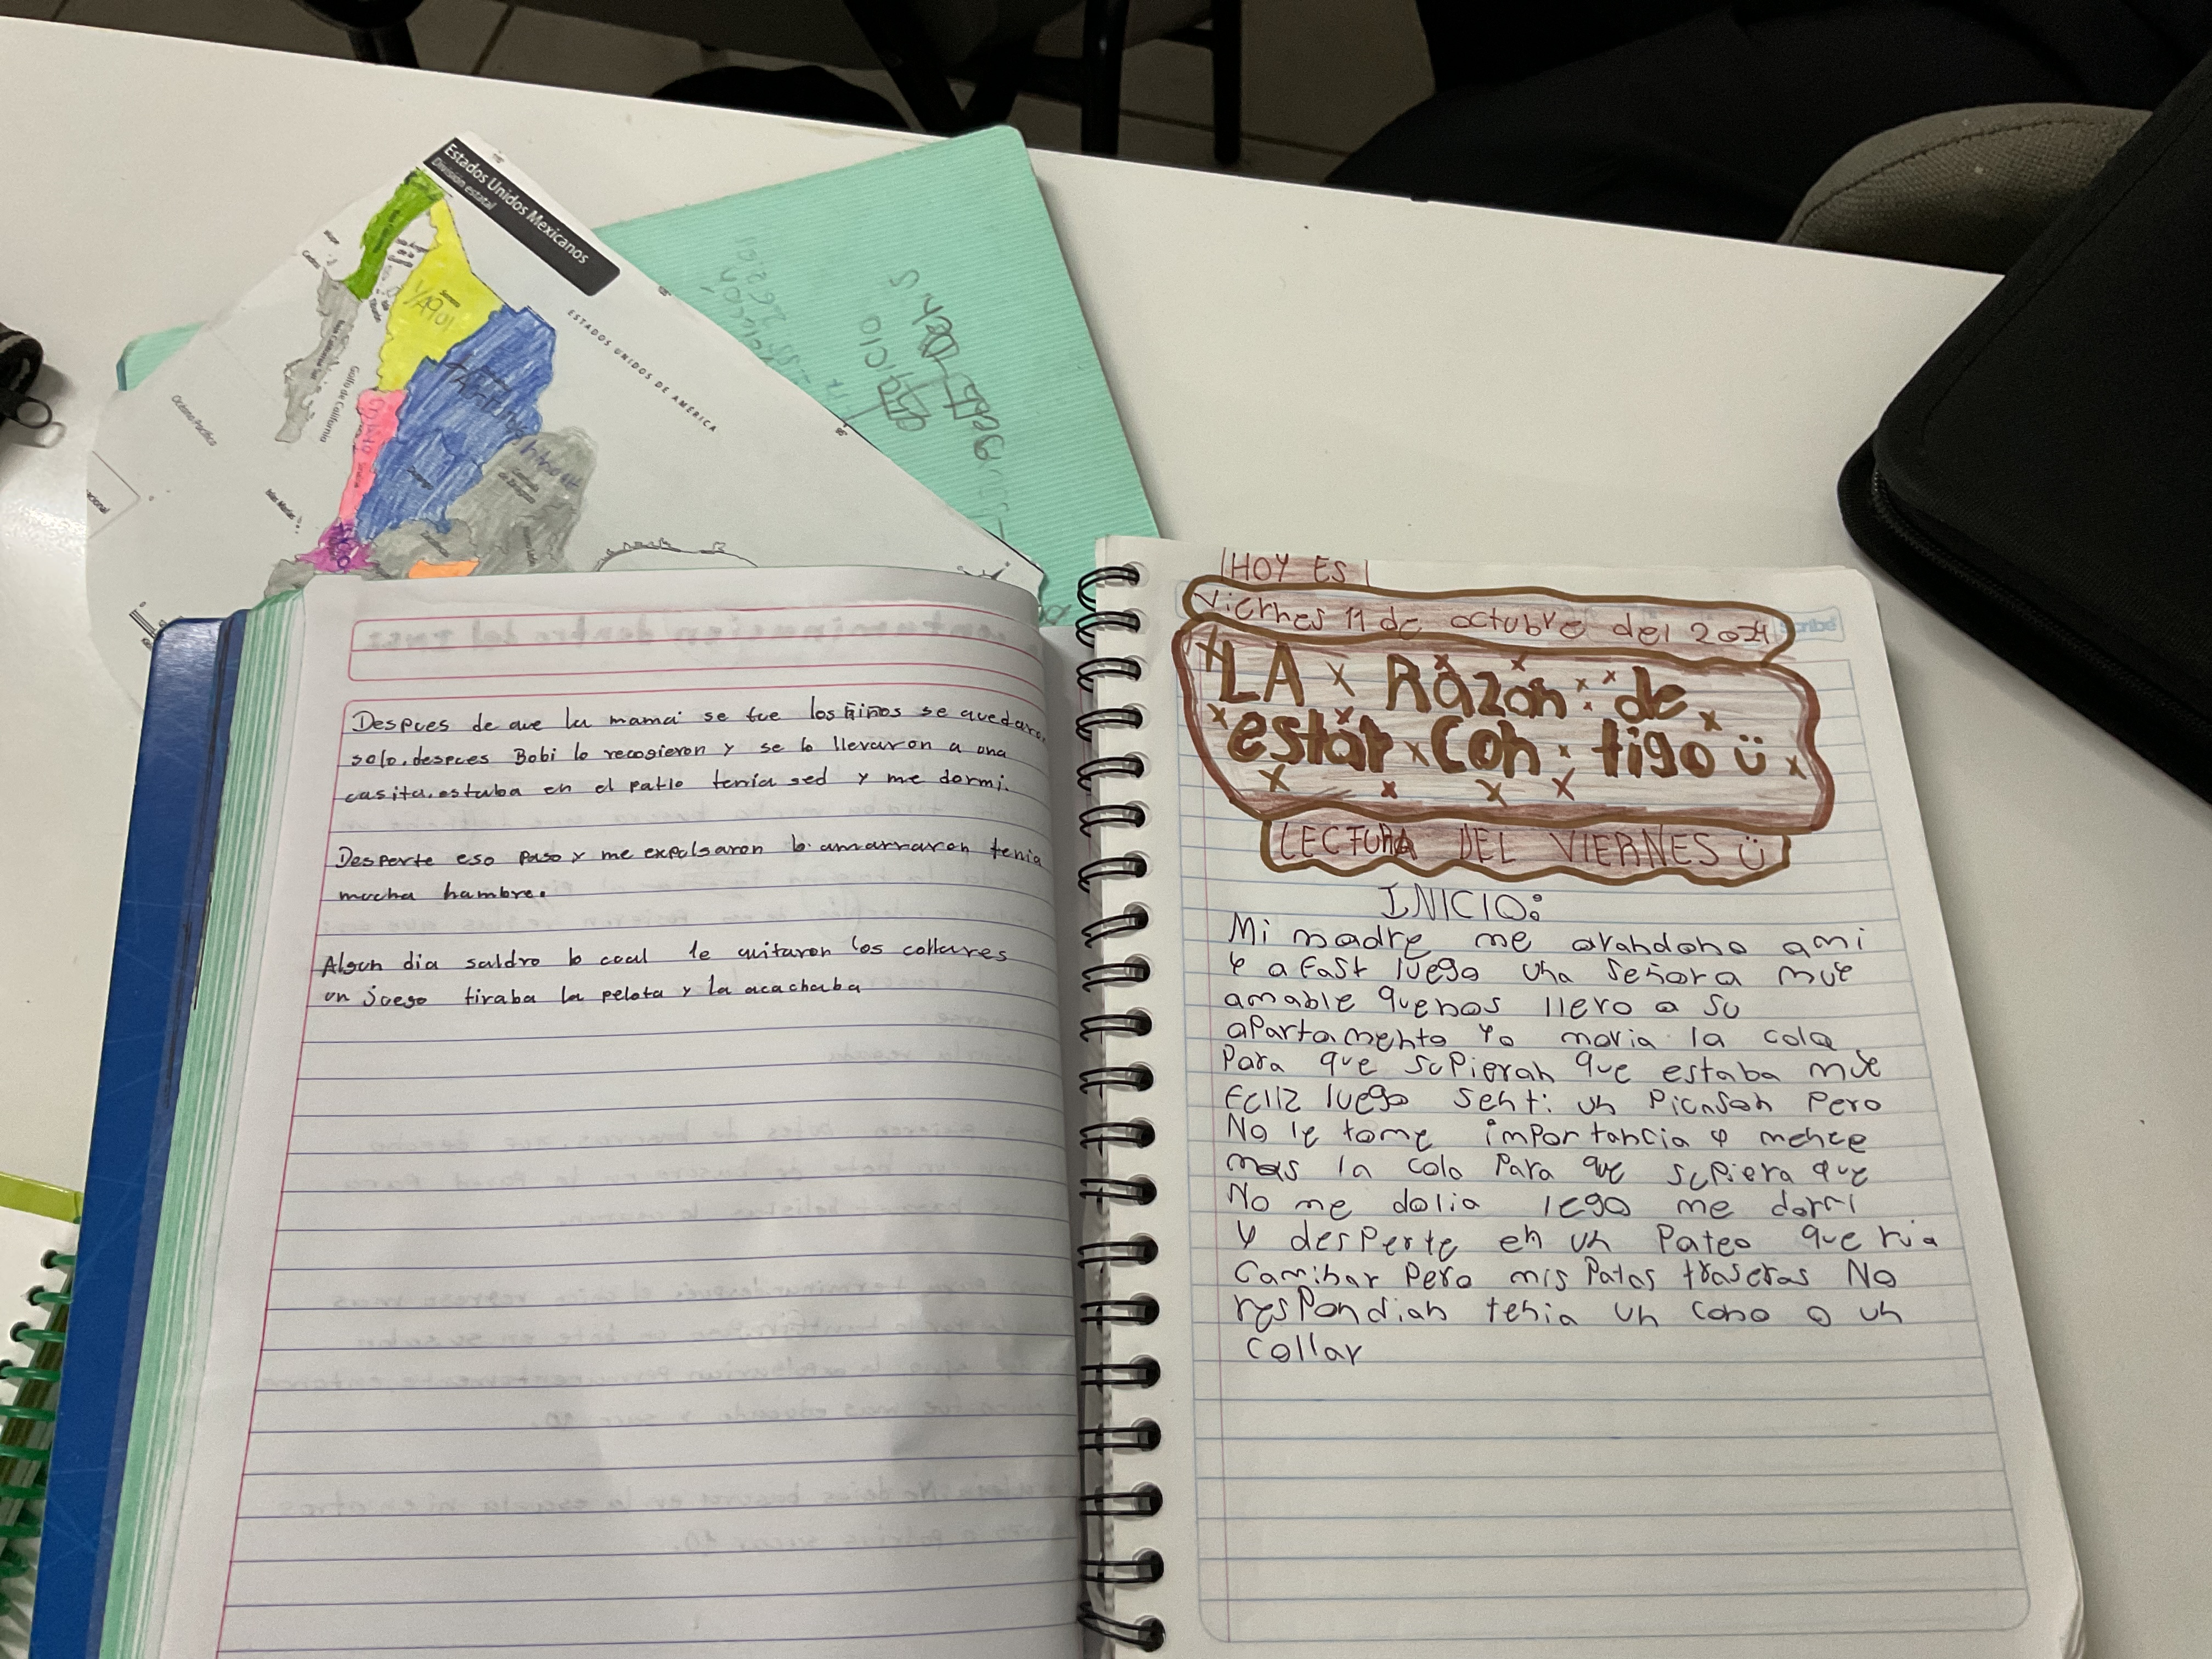 Estados Unidos Mexicanos
División estatal
ESTADOS UNIDOS DE AMÉRICA
Océano Pacífico
Golfo de California
Islas Marías
Sonora
YAQUI
Durango
Despues de que la mamá se fue los niños se quedaron
solo. despues Bobi lo recogieron y se lo llevaron a una
casita. estaba en el patio tenia sed y me dormi.
Desperte eso paso y me expulsaron lo amarraron tenia
mucha hambre.
Algun dia saldro lo cual le quitaron los collares
un juego tiraba la pelota y la acachaba
HOY ES
Viernes 11 de octubre del 2024
scribe
LA Razon de
estar Con tigo ü
LECTURA DEL VIERNES Ü
INICIO:
Mi madre me avandono ami
y a Fast luego una señora mue
amable quenos llevo a su
apartamento Yo movia la cola
Para que supieran que estaba mue
Feliz luego senti un Picnson Pero
No le tome importancia y mence
mas la cola Para que supiera que
No me dolia lego me dormi
Y desperte en un Pateo que ria
Caminar Pero mis Patas traseras No
respondian tenia un cono o un
collar